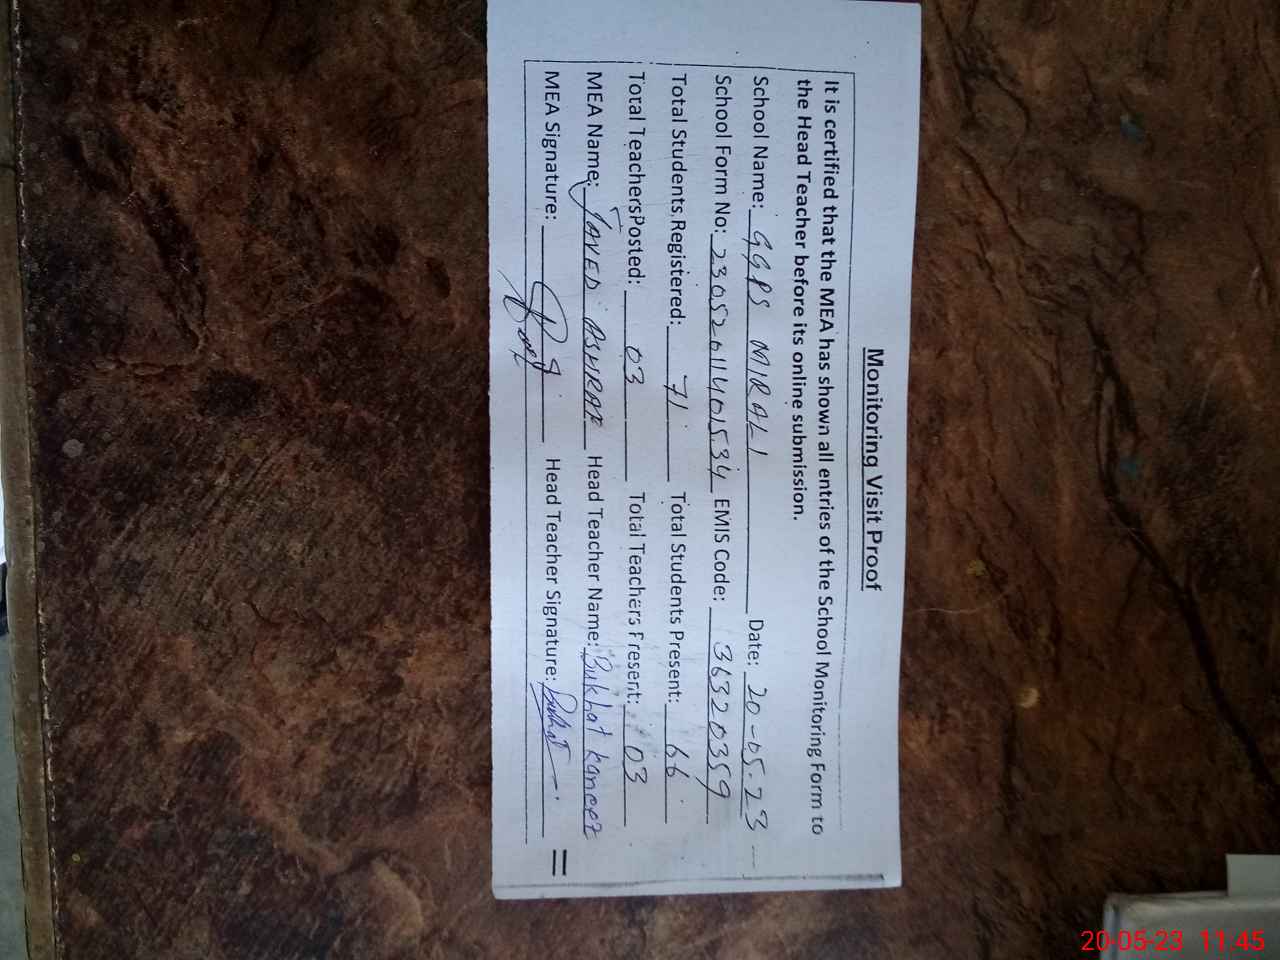 Monitoring Visit Proof
It is certified that the MEA has shown all entries of the School Monitoring Form to
the Head Teacher before its online submission.
School Name: GGPS MIRALI Date: 20-05-23
School Form No: 23052011401534 EMIS Code: 36320359
Total Students Registered: 71 Total Students Present: 66
Total TeachersPosted: 03 Total Teachers Present: 03
MEA Name: JAVED ASHRAF Head Teacher Name: Bukhat kaneez
MEA Signature: Head Teacher Signature: Bukhat
20-05-23 11:45